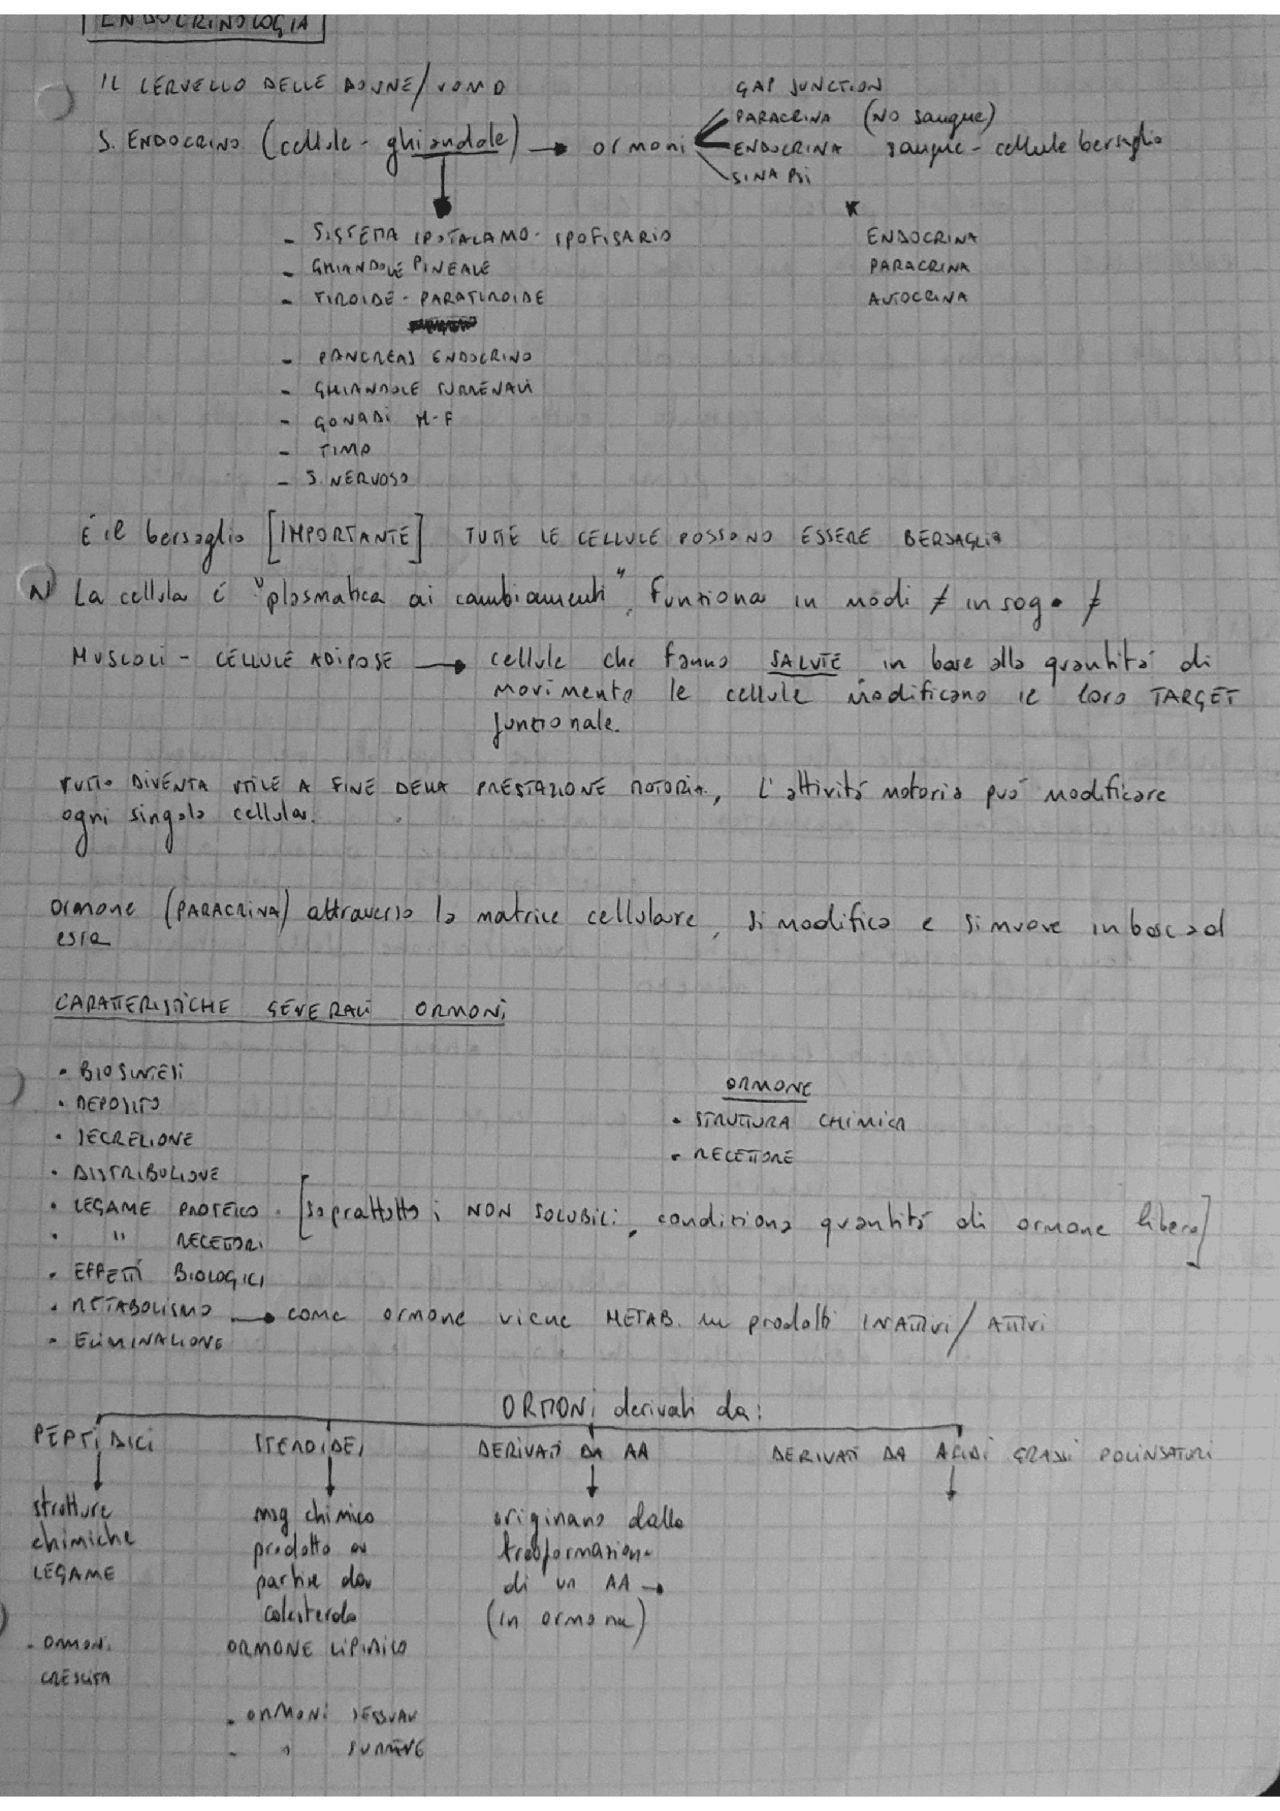 ENDOCRINOLOGIA
IL CERVELLO DELLE DONNE/UOMO
GAP JUNCTION
PARACRINA (NO sangue)
S. ENDOCRINO (cellule - ghiandole) → ormoni
ENDOCRINA sangue - cellule bersaglio
SINAPSI
- SISTEMA IPOTALAMO - IPOFISARIO
- GHIANDOLE PINEALE
- TIROIDE - PARATIROIDE
- PANCREAS ENDOCRINO
- GHIANDOLE SURRENALI
- GONADI M-F
- TIMO
- S. NERVOSO
*
ENDOCRINA
PARACRINA
AUTOCRINA
É il bersaglio [IMPORTANTE] TUTTE LE CELLULE POSSONO ESSERE BERSAGLIO
La cellula é "plasmatica ai cambiamenti", funziona in modi ≠ in sog. ≠
MUSCOLI - CELLULE ADIPOSE → cellule che fanno SALUTE in base alla quantitá di
movimento le cellule modificano il loro TARGET
funzionale.
TUTTO DIVENTA UTILE A FINE DELLA PRESTAZIONE MOTORIA, L'attivitá motoria puó modificare
ogni singola cellula.
ormone (PARACRINA) attraverso la matrice cellulare, si modifica e si muove in base ad
essa
CARATTERISTICHE GENERALI ORMONI
• BIOSINTESI
• DEPOSITO
• SECREZIONE
• DISTRIBUZIONE
• LEGAME PROTEICO - [soprattutto i NON SOLUBILI, condiziona quantitá di ormone libero]
• " RECETTORI
• EFFETTI BIOLOGICI
• METABOLISMO → come ormone viene METAB. in prodotti INATTIVI/ATTIVI
• ELIMINAZIONE
ORMONE
• STRUTTURA CHIMICA
• RECETTORE
ORMONI derivati da:
PEPTIDICI
strutture
chimiche
LEGAME
• ORMONI
CRESCITA
STEROIDEI
msg chimico
prodotto a
partire da
colesterolo
ORMONE LIPIDICO
• ORMONI SESSUALI
• " SURRENE
DERIVATI DA AA
originano dalla
trasformazione
di un AA →
(in ormone)
DERIVATI DA ACIDI GRASSI POLINSATURI